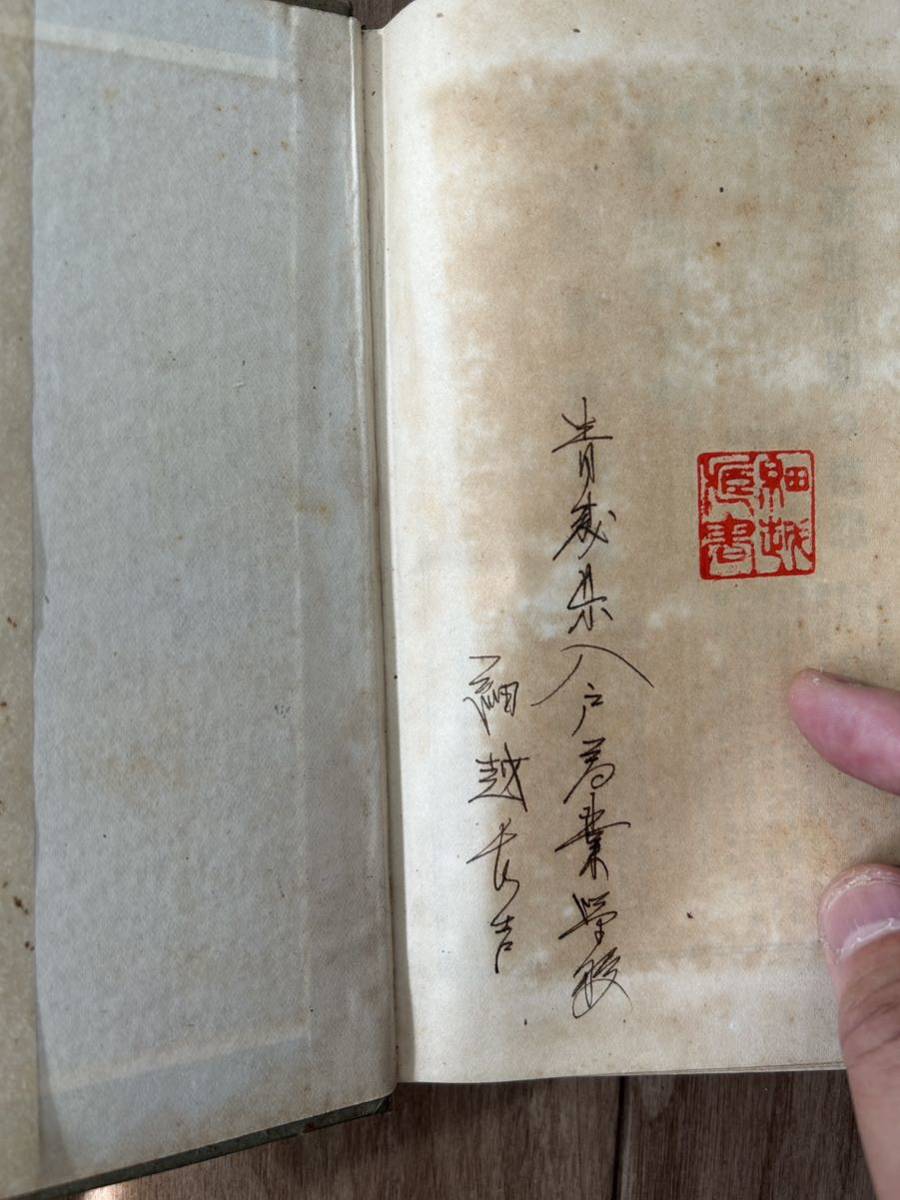 細越
藏書
青森県八戸商業学校
細越長吉